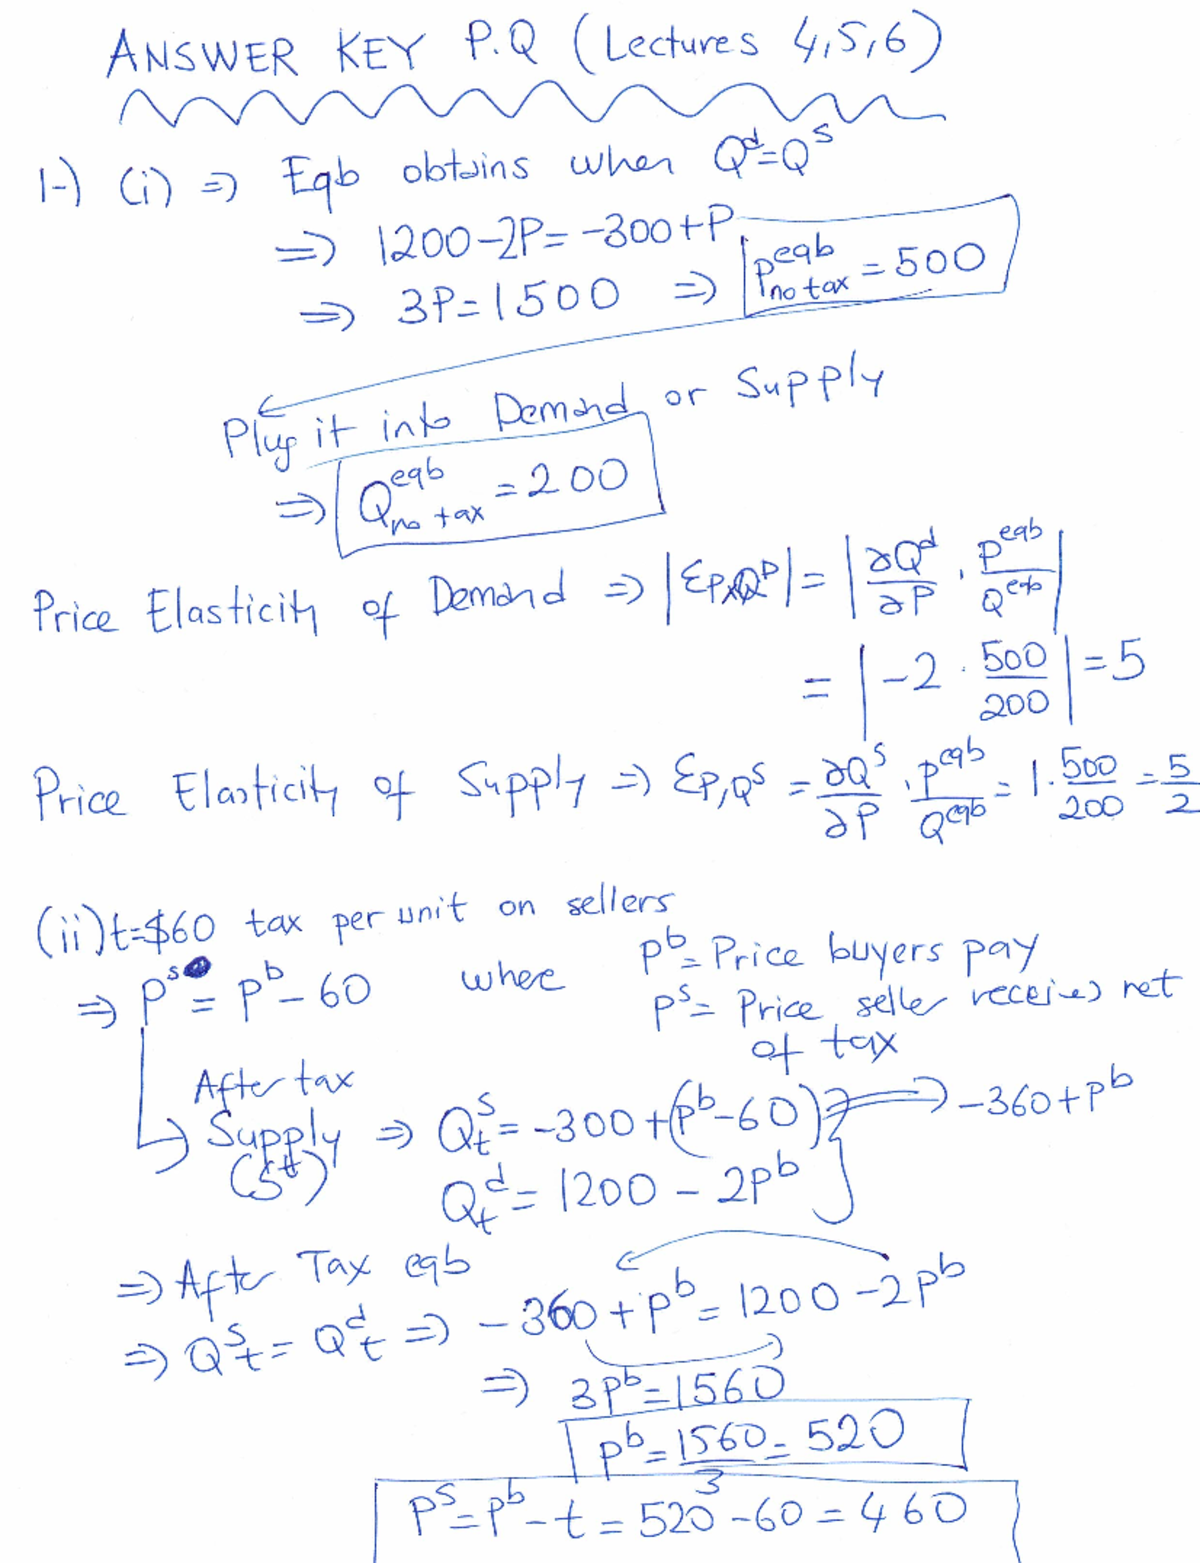 ANSWER KEY P.Q (Lectures 4,5,6)
1-) (i) ⇒ Eqb obtains when Q^d=Q^s
⇒ 1200-2P= -300+P
⇒ 3P=1500 ⇒ P^eqb_no tax = 500
Plug it into Demand or Supply
⇒ Q^eqb_no tax = 200
Price Elasticity of Demand ⇒ |ε_P,Q^D| = |∂Q^d/∂P . P^eqb/Q^eqb|
= |-2 . 500/200| = 5
Price Elasticity of Supply ⇒ ε_P,Q^s = ∂Q^s/∂P . P^eqb/Q^eqb = 1. 500/200 = 5/2
(ii) t=$60 tax per unit on sellers
⇒ P^s = P^b - 60 where P^b = Price buyers pay
P^s = Price seller receives net of tax
After tax
Supply ⇒ Q^s_t = -300 + (P^b-60) ⇒ -360+P^b
(S^t)
Q^d_t = 1200 - 2P^b
⇒ After Tax eqb
⇒ Q^s_t = Q^d_t ⇒ -360 + P^b = 1200 - 2P^b
⇒ 3P^b = 1560
P^b = 1560/3 = 520
P^s = P^b - t = 520 - 60 = 460